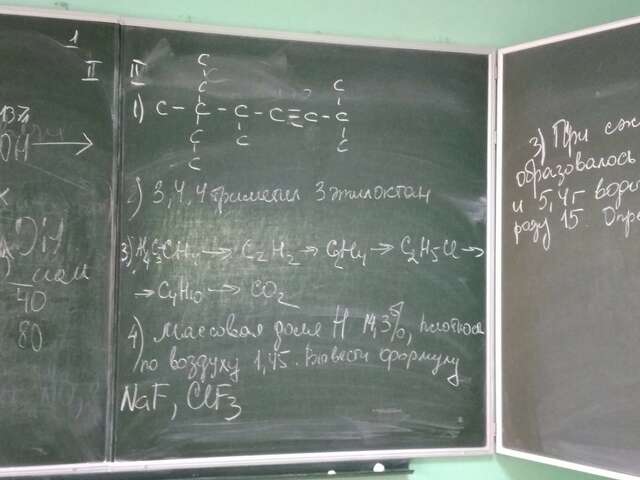 1
II
IV
C
C
C
1) C - C - C - C ≡ C - C
C C C
C
2) 3,4,4 триметил 3 этилоктан
3) CH₄ → C₂H₂ → C₂H₄ → C₂H₅Cl →
→ C₄H₁₀ → CO₂
4) Массовая доля H 14,3%, плотнос
по воздуху 1,45. Вывести формулу
NaF, ClF₃
OH →
40
80
3) При сж
образовалось
и 5,4г водо
роду 15. Опре